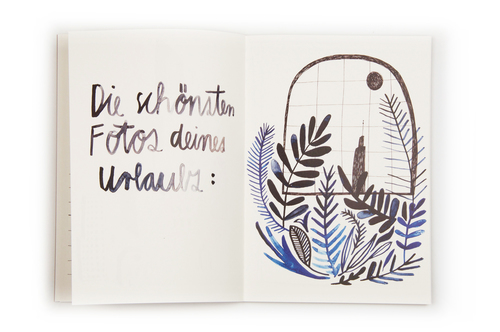 Die schönsten
Fotos deines
Urlaubs: